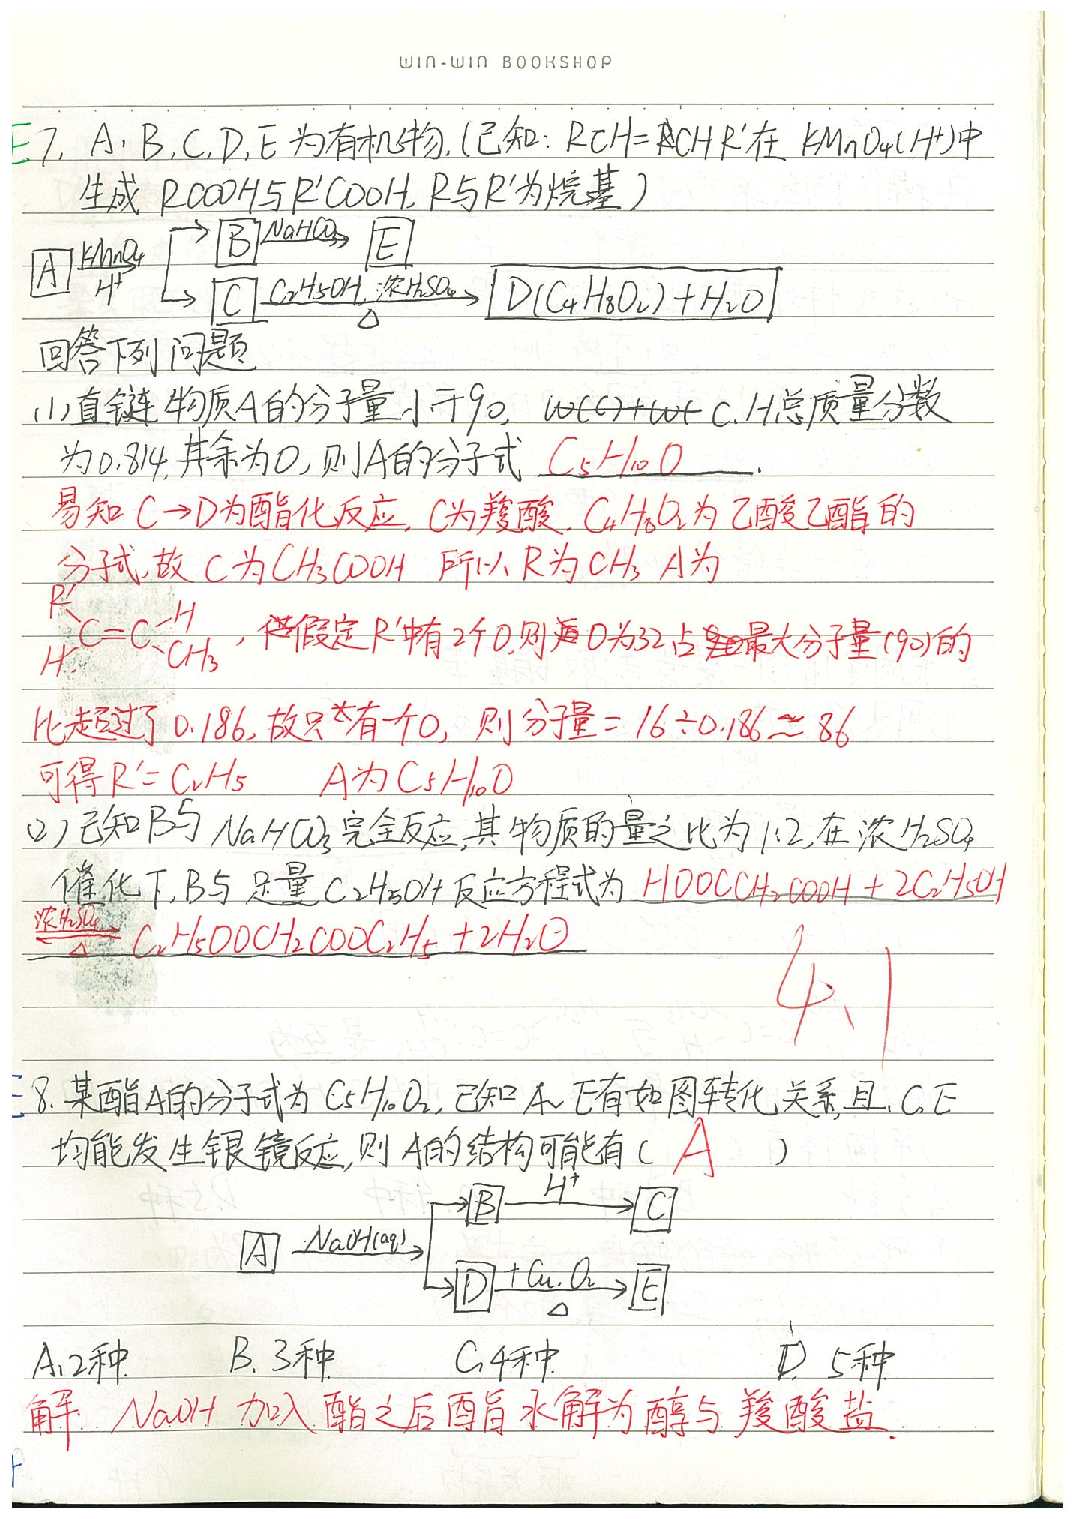 WIN-WIN BOOKSHOP
E7. A、B、C、D、E为有机物.(已知: RCH=CHR'在 KMnO4(H+)中
生成 RCOOH与R'COOH, R与R'为烷基)
B NaHCO3 E
A KMnO4 H+
C C2H5OH, 浓H2SO4 △ D(C4H8O2)+H2O
回答下列问题
(1)直链物质A的分子量小于90, C、H总质量分数
为0.814,其余为O,则A的分子式 C5H10O .
易知C→D为酯化反应, C为羧酸. C4H8O2为乙酸乙酯的
分子式,故C为CH3COOH 所以R为CH3 A为
R' H C=C H CH3 , 假定R'中有2个O,则O为32占最大分子量(90)的
比超过了0.186,故只有一个O, 则分子量=16÷0.186≈86
可得R'=C2H5 A为C5H10O
(2)已知B与NaHCO3完全反应,其物质的量之比为1:2,在浓H2SO4
催化下,B与足量C2H5OH反应方程式为 HOOCCH2COOH+2C2H5OH
浓H2SO4 △ C2H5OOCH2COOC2H5+2H2O
4、1
E8.某酯A的分子式为C5H10O2,已知A~E有如图转化关系,且C、E
均能发生银镜反应,则A的结构可能有( A )
B H+ C
A NaOH(aq)
D +Cu、O2 △ E
A、2种 B、3种 C、4种 D、5种
解. NaOH 加入酯之后酯水解为醇与羧酸盐.